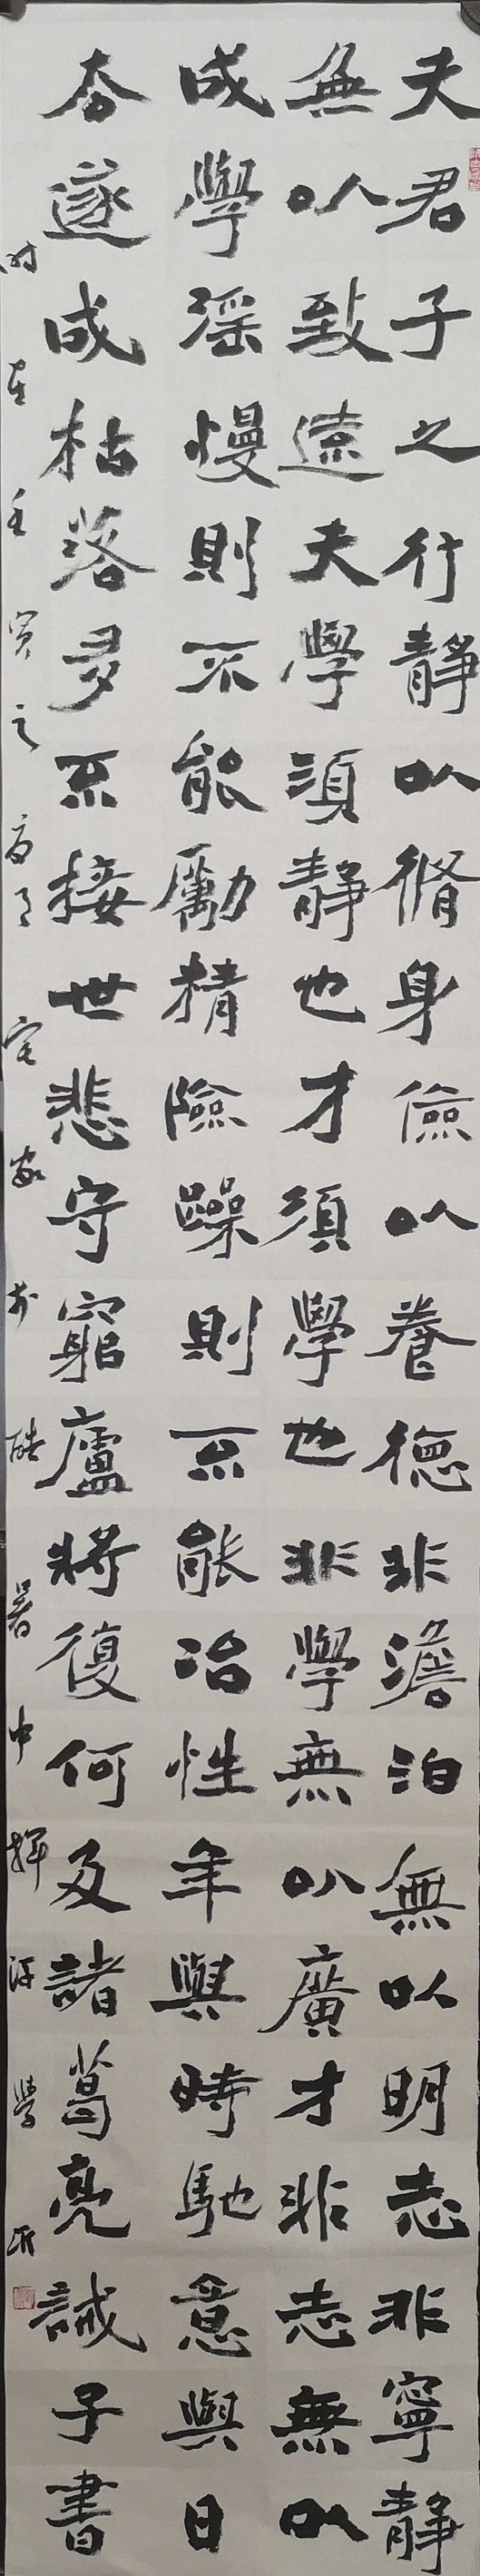 夫君子之行靜以脩身儉以養德非澹泊無以明志非寧靜
無以致遠夫學須靜也才須學也非學無以廣才非志無以
成學淫慢則不能勵精險躁則不能冶性年與時馳意與日
去遂成枯落多不接世悲守窮廬將復何及諸葛亮誡子書
時在壬寅之 暑中揮汗學